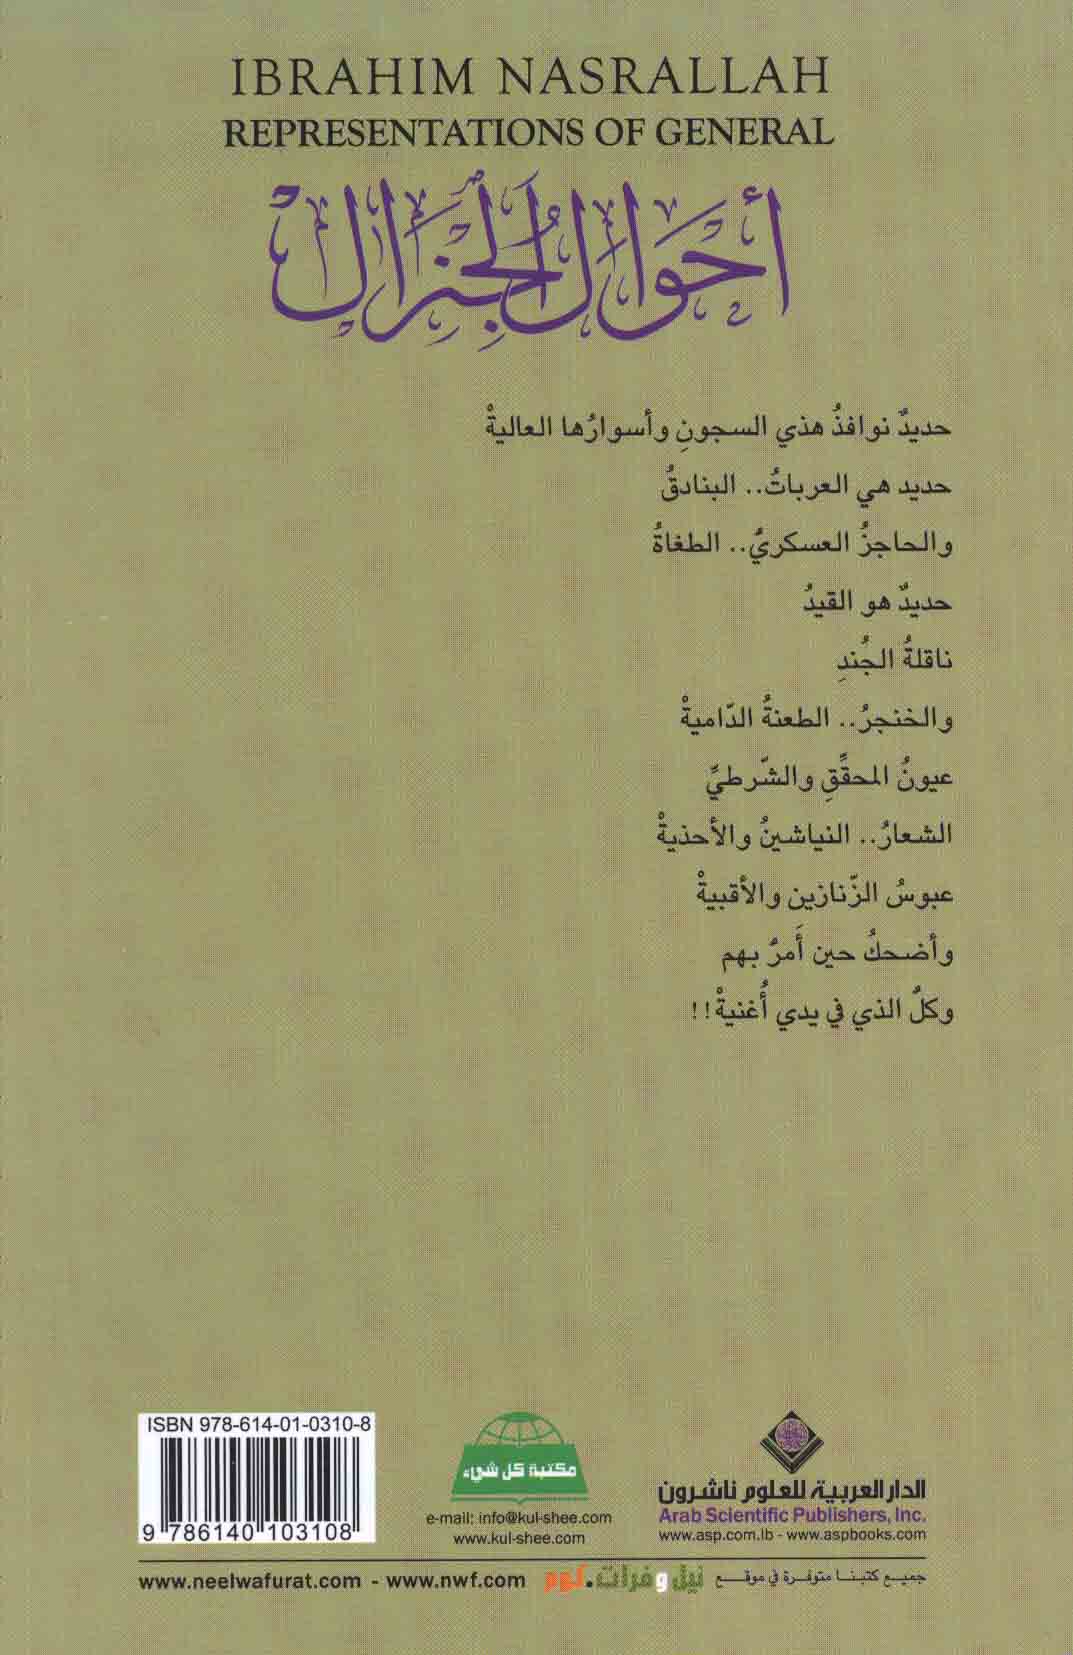 IBRAHIM NASRALLAH
REPRESENTATIONS OF GENERAL
أحوال الجنرال
حديدٌ نوافذُ هذي السجونِ وأسوارُها العاليةْ
حديد هي العرباتُ.. البنادقُ
والحاجزُ العسكريُّ.. الطغاةُ
حديدٌ هو القيدُ
ناقلةُ الجُندِ
والخنجرُ.. الطعنةُ الدّاميةْ
عيونُ المحقِّقِ والشّرطيِّ
الشعارُ.. النياشينُ والأحذيةْ
عبوسُ الزّنازين والأقبيةْ
وأضحكُ حين أَمرُّ بهم
وكلُّ الذي في يدي أُغنيةْ!!
ISBN 978-614-01-0310-8
9 786140 103108
مكتبة كل شيء
e-mail: info@kul-shee.com
www.kul-shee.com
الدار العربية للعلوم ناشرون
Arab Scientific Publishers, Inc.
www.asp.com.lb - www.aspbooks.com
جميع كتبنا متوفرة في موقع نيل وفرات.كوم www.neelwafurat.com - www.nwf.com